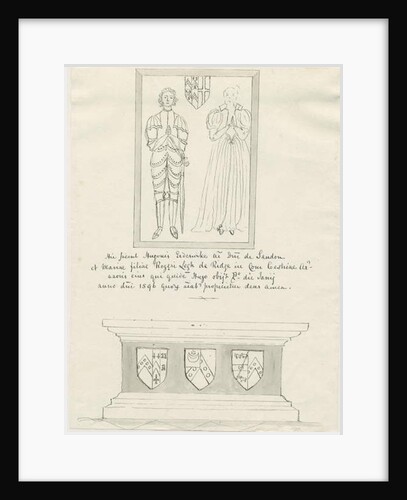 Hic jacent Hugonis Erdeswike Ar Dm̄ de Sandon
et Mariæ filiæ Rogeri Legh de Ridge in Com Cestriæ
uxoris ejus qui quidem Hugo obijt 2º die Janij
anno dm̄. 1596 quorū aīabȝ propicietur deus amen.